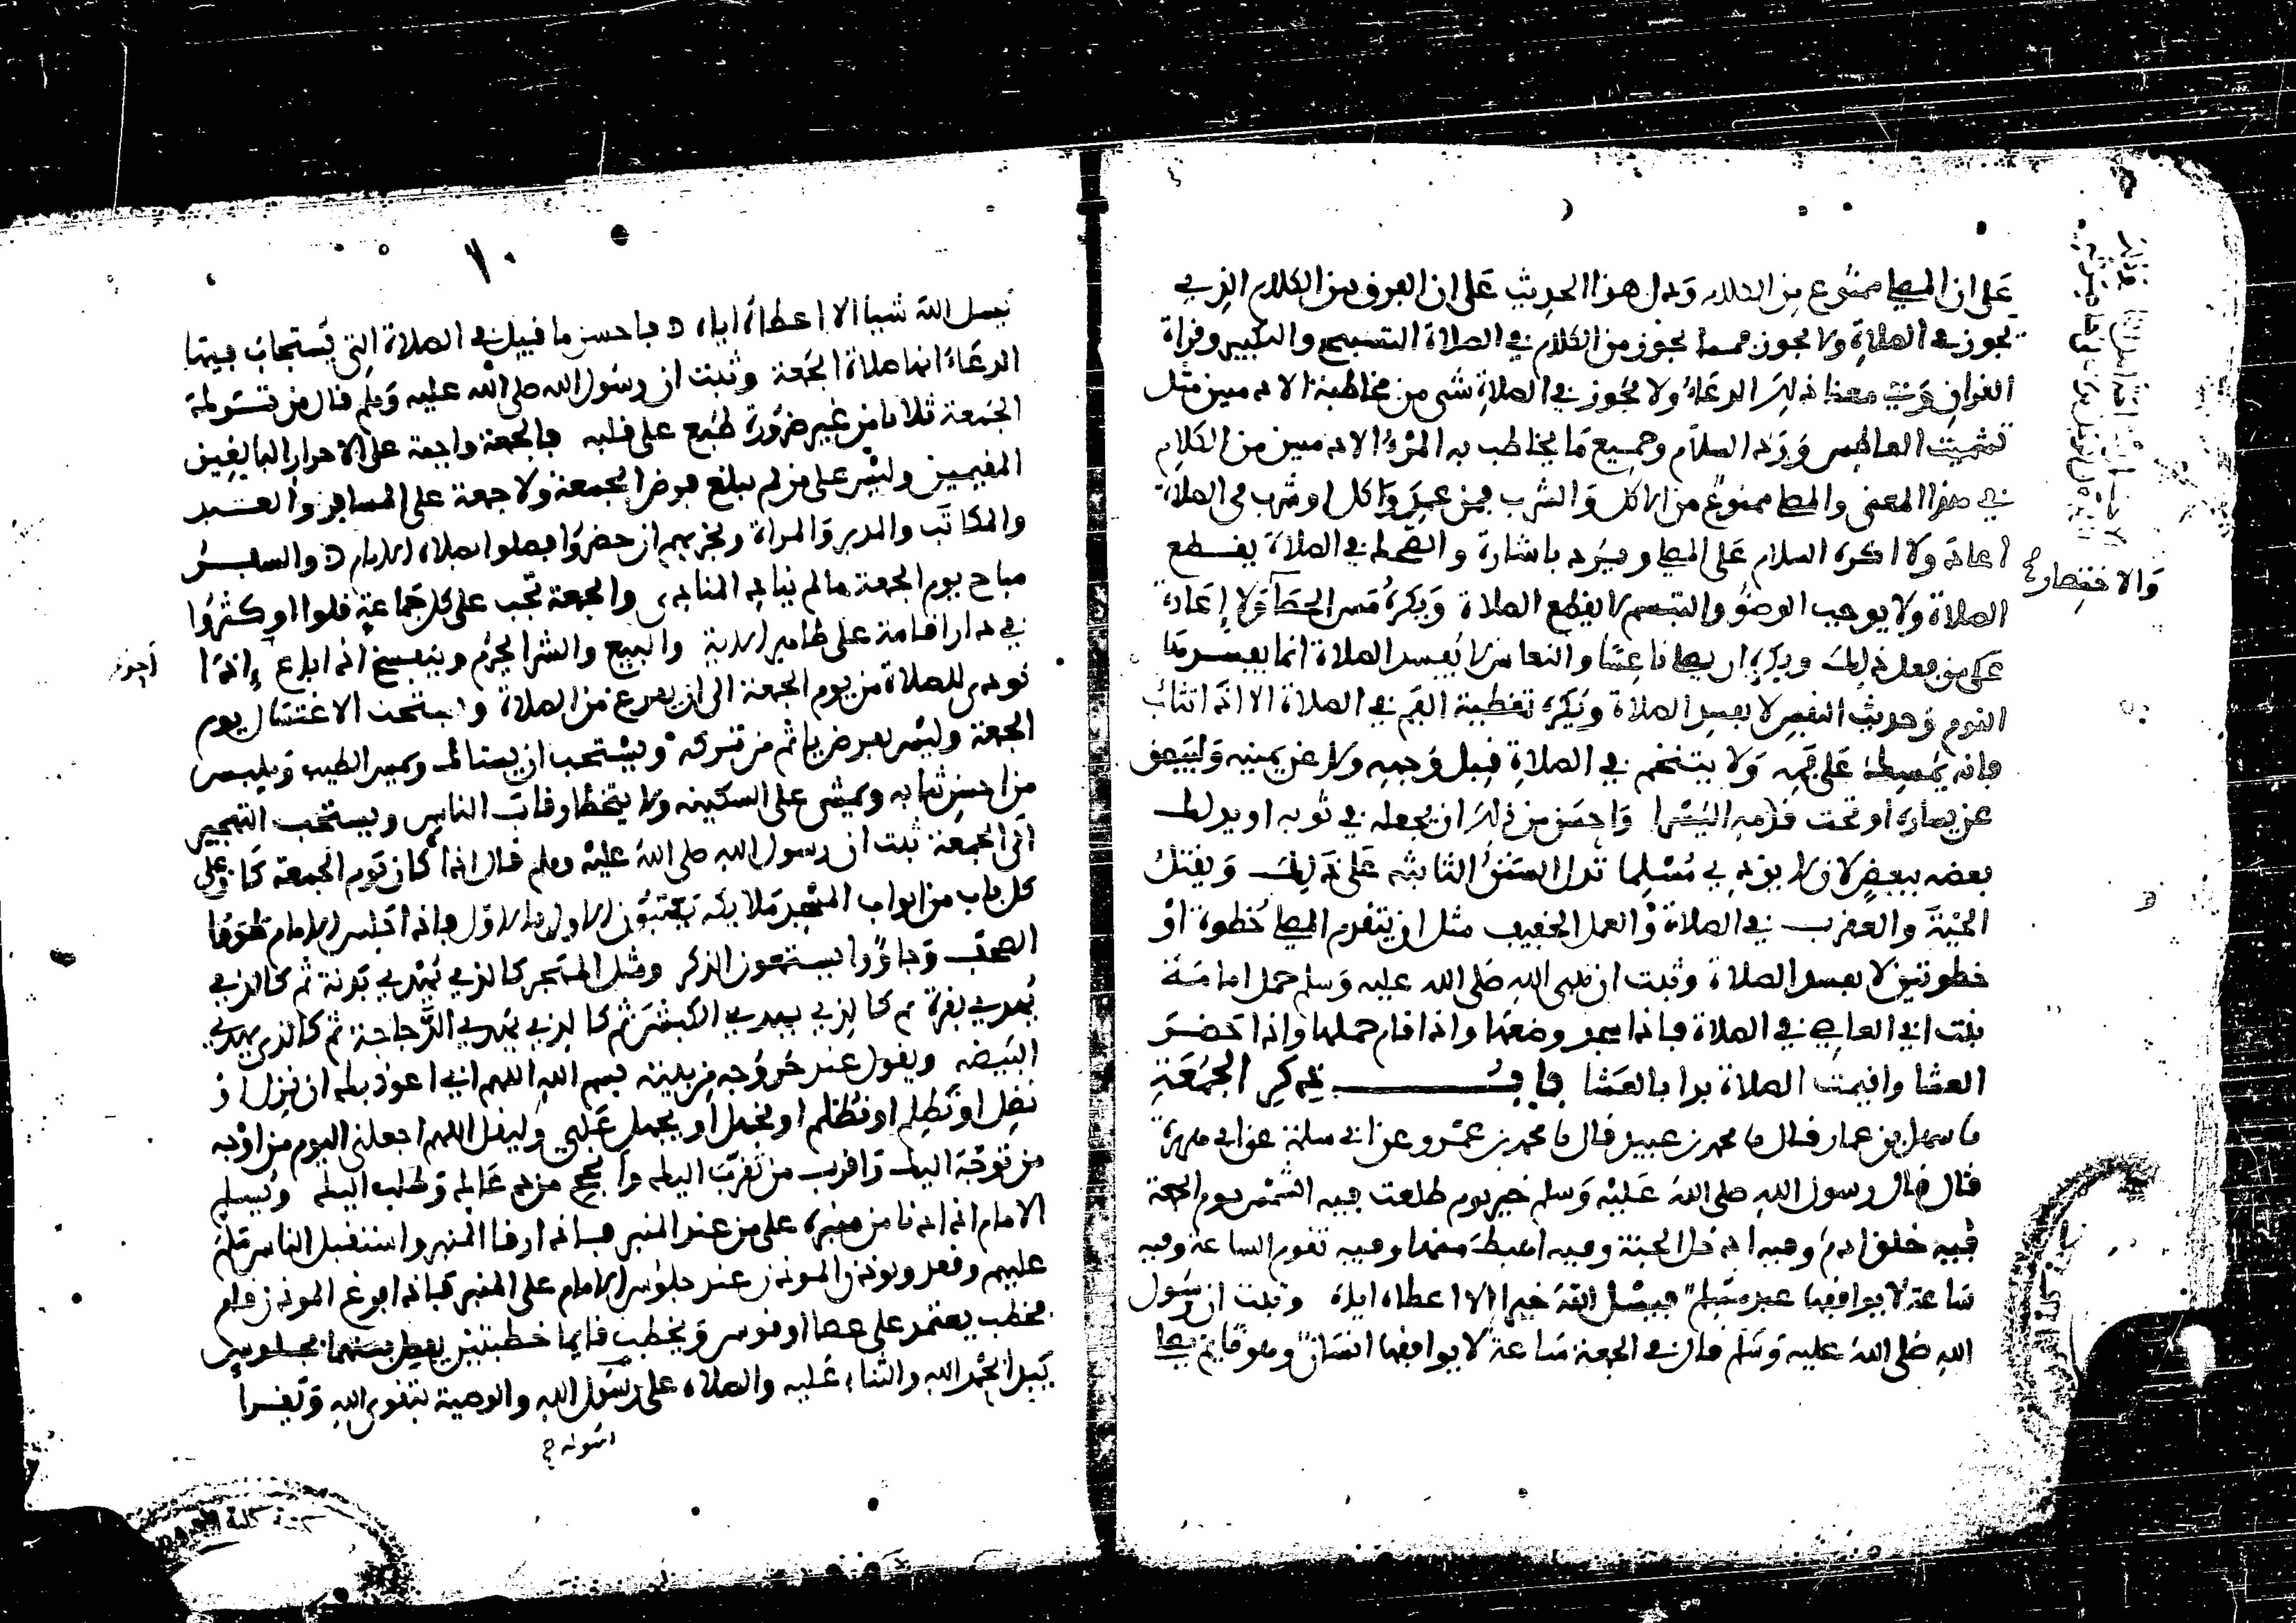 على ان المصلي ممنوع من الكلام ودل هذا الحديث على ان الفرق بين الكلام الذي
يجوز في الصلاة ولا يجوز فمما يجوز من الكلام في الصلاة التسبيح والتكبير وقراة
القران وفي معنا ذلك الدعاء ولا يجوز في الصلاة شي من مخاطبة الادميين مثل
تشميت العاطس ورد السلام وجميع ما يخاطب به المرء الادميين من الكلام
في هذا المعنى والمصلي ممنوع من الاكل والشرب فمن عمد واكل او شرب في الصلاة
اعاد ولا اكره السلام على المصلي ويرد باشارة والضحك في الصلاة يقطع
والاختصار
الصلاة ولا يوجب الوضو والتبسم لا يقطع الصلاة ويكره مس الحصا ولا إعادة
على من فعل ذلك ويكره ان يصلي ناعسا والنعاس لا يفسد الصلاة انما يفسدها
النوم وحديث النفس لا يفسد الصلاة ويكره تغطية الفم في الصلاة الا اذا تثاب
فانه يمسك على فيه ولا يتنخم في الصلاة قبل وجهه ولا عن يمينه وليبصق
عن يساره او تحت قدمه اليسرا واحسن من ذلك ان يجعله في ثوبه او يدلك
بعضه ببعض لان لا يوذي مسلما تدل السنن الثابتة على ذلك ويقتل
الحية والعقرب في الصلاة والعمل الخفيف مثل ان يتقدم المصلي خطوة او
خطوتين لا يفسد الصلاة وثبت ان نبي الله صلى الله عليه وسلم حمل امامة
بنت ابي العاصي في الصلاة فاذا سجد وضعها واذا قام حملها واذا حضر
العشا واقيمت الصلاة بدا بالعشا باب ذكر الجمعة
نا سهل بن عمار قال نا محمد بن عبيد قال نا محمد بن عمرو عن ابي سلمة عن ابي هريرة
قال قال رسول الله صلى الله عليه وسلم خير يوم طلعت فيه الشمس يوم الجمعة
فيه خلق ادم وفيه ادخل الجنة وفيه اهبط منها وفيه تقوم الساعة وفيه
ساعة لا يوافقها عبد مسلم فيسل الله خيرا الا اعطاه اياه وثبت ان رسول
الله صلى الله عليه وسلم قال في الجمعة ساعة لا يوافقها انسان وهو قايم يصلي
١٠
يسل الله شيا الا اعطاه اياه فاحسن ما قيل في الصلاة التي يستجاب فيها
الدعاء انها صلاة الجمعة وثبت ان رسول الله صلى الله عليه وسلم قال من ترك
الجمعة ثلاثا من غير ضرورة طبع على قلبه فالجمعة واجبة على الاحرار البالغين
المقيمين وليس على من لم يبلغ فرض الجمعة ولا جمعة على المسافر والعبد
والمكاتب والمدبر والمراة ويجزيهم ان حضروا فصلوا بصلاة الامام والسفر
مباح يوم الجمعة ما لم يناد المنادي والجمعة تجب على كل جماعة قلوا او كثروا
في دار اقامة على ظاهر الاية والبيع والشرا يحرم ويفسخ اذا ابتاع إذا
نودي للصلاة من يوم الجمعة الى ان يفرغ من الصلاة ويستحب الاغتسال يوم
الجمعة وليس بفرض ياثم من تركه ويستحب ان يستاك ويمس الطيب ويلبس
من احسن ثيابه ويمشي على السكينة ولا يتخطا رقاب الناس ويستحب التهجير
الى الجمعة ثبت ان رسول الله صلى الله عليه وسلم قال اذا كان يوم الجمعة كان على
كل باب من ابواب المسجد ملايكة يكتبون الاول فالاول فاذا جلس الامام طووا
الصحف وجاؤا يستمعون الذكر ومثل المهجر كالذي يهدي بدنة ثم كالذي
يهدي بقرة ثم كالذي يهدي الكبش ثم كالذي يهدي الدجاجة ثم كالذي يهدي
البيضة ويقول عند خروجه من بيته بسم الله اللهم اني اعوذ بك ان نزل او
نضل او نظلم او نظلم او نجهل او يجهل علي وليقل اللهم اجعلني اليوم من اوجه
من توجه اليك واقرب من تقرب اليك وانجح من دعاك وطلب اليك ويسلم
الامام اذا دنا من منبره على من عند المنبر فاذا رقا المنبر واستقبل الناس سلم
عليهم وقعد ويوذن الموذن عند جلوس الامام على المنبر فاذا فرغ الموذن قام
فخطب يعتمد على عصا او قوس ويخطب قايما خطبتين يفصل بينهما بجلوس
يبدا بحمد الله والثناء عليه والصلاه على رسول الله والوصية بتقوى الله ويقرا